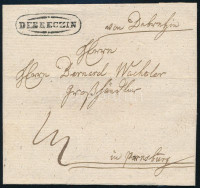 DEBRECZIN
von Debrezin
Herrn
Herrn Bernard Wechsler
Großhändler
in